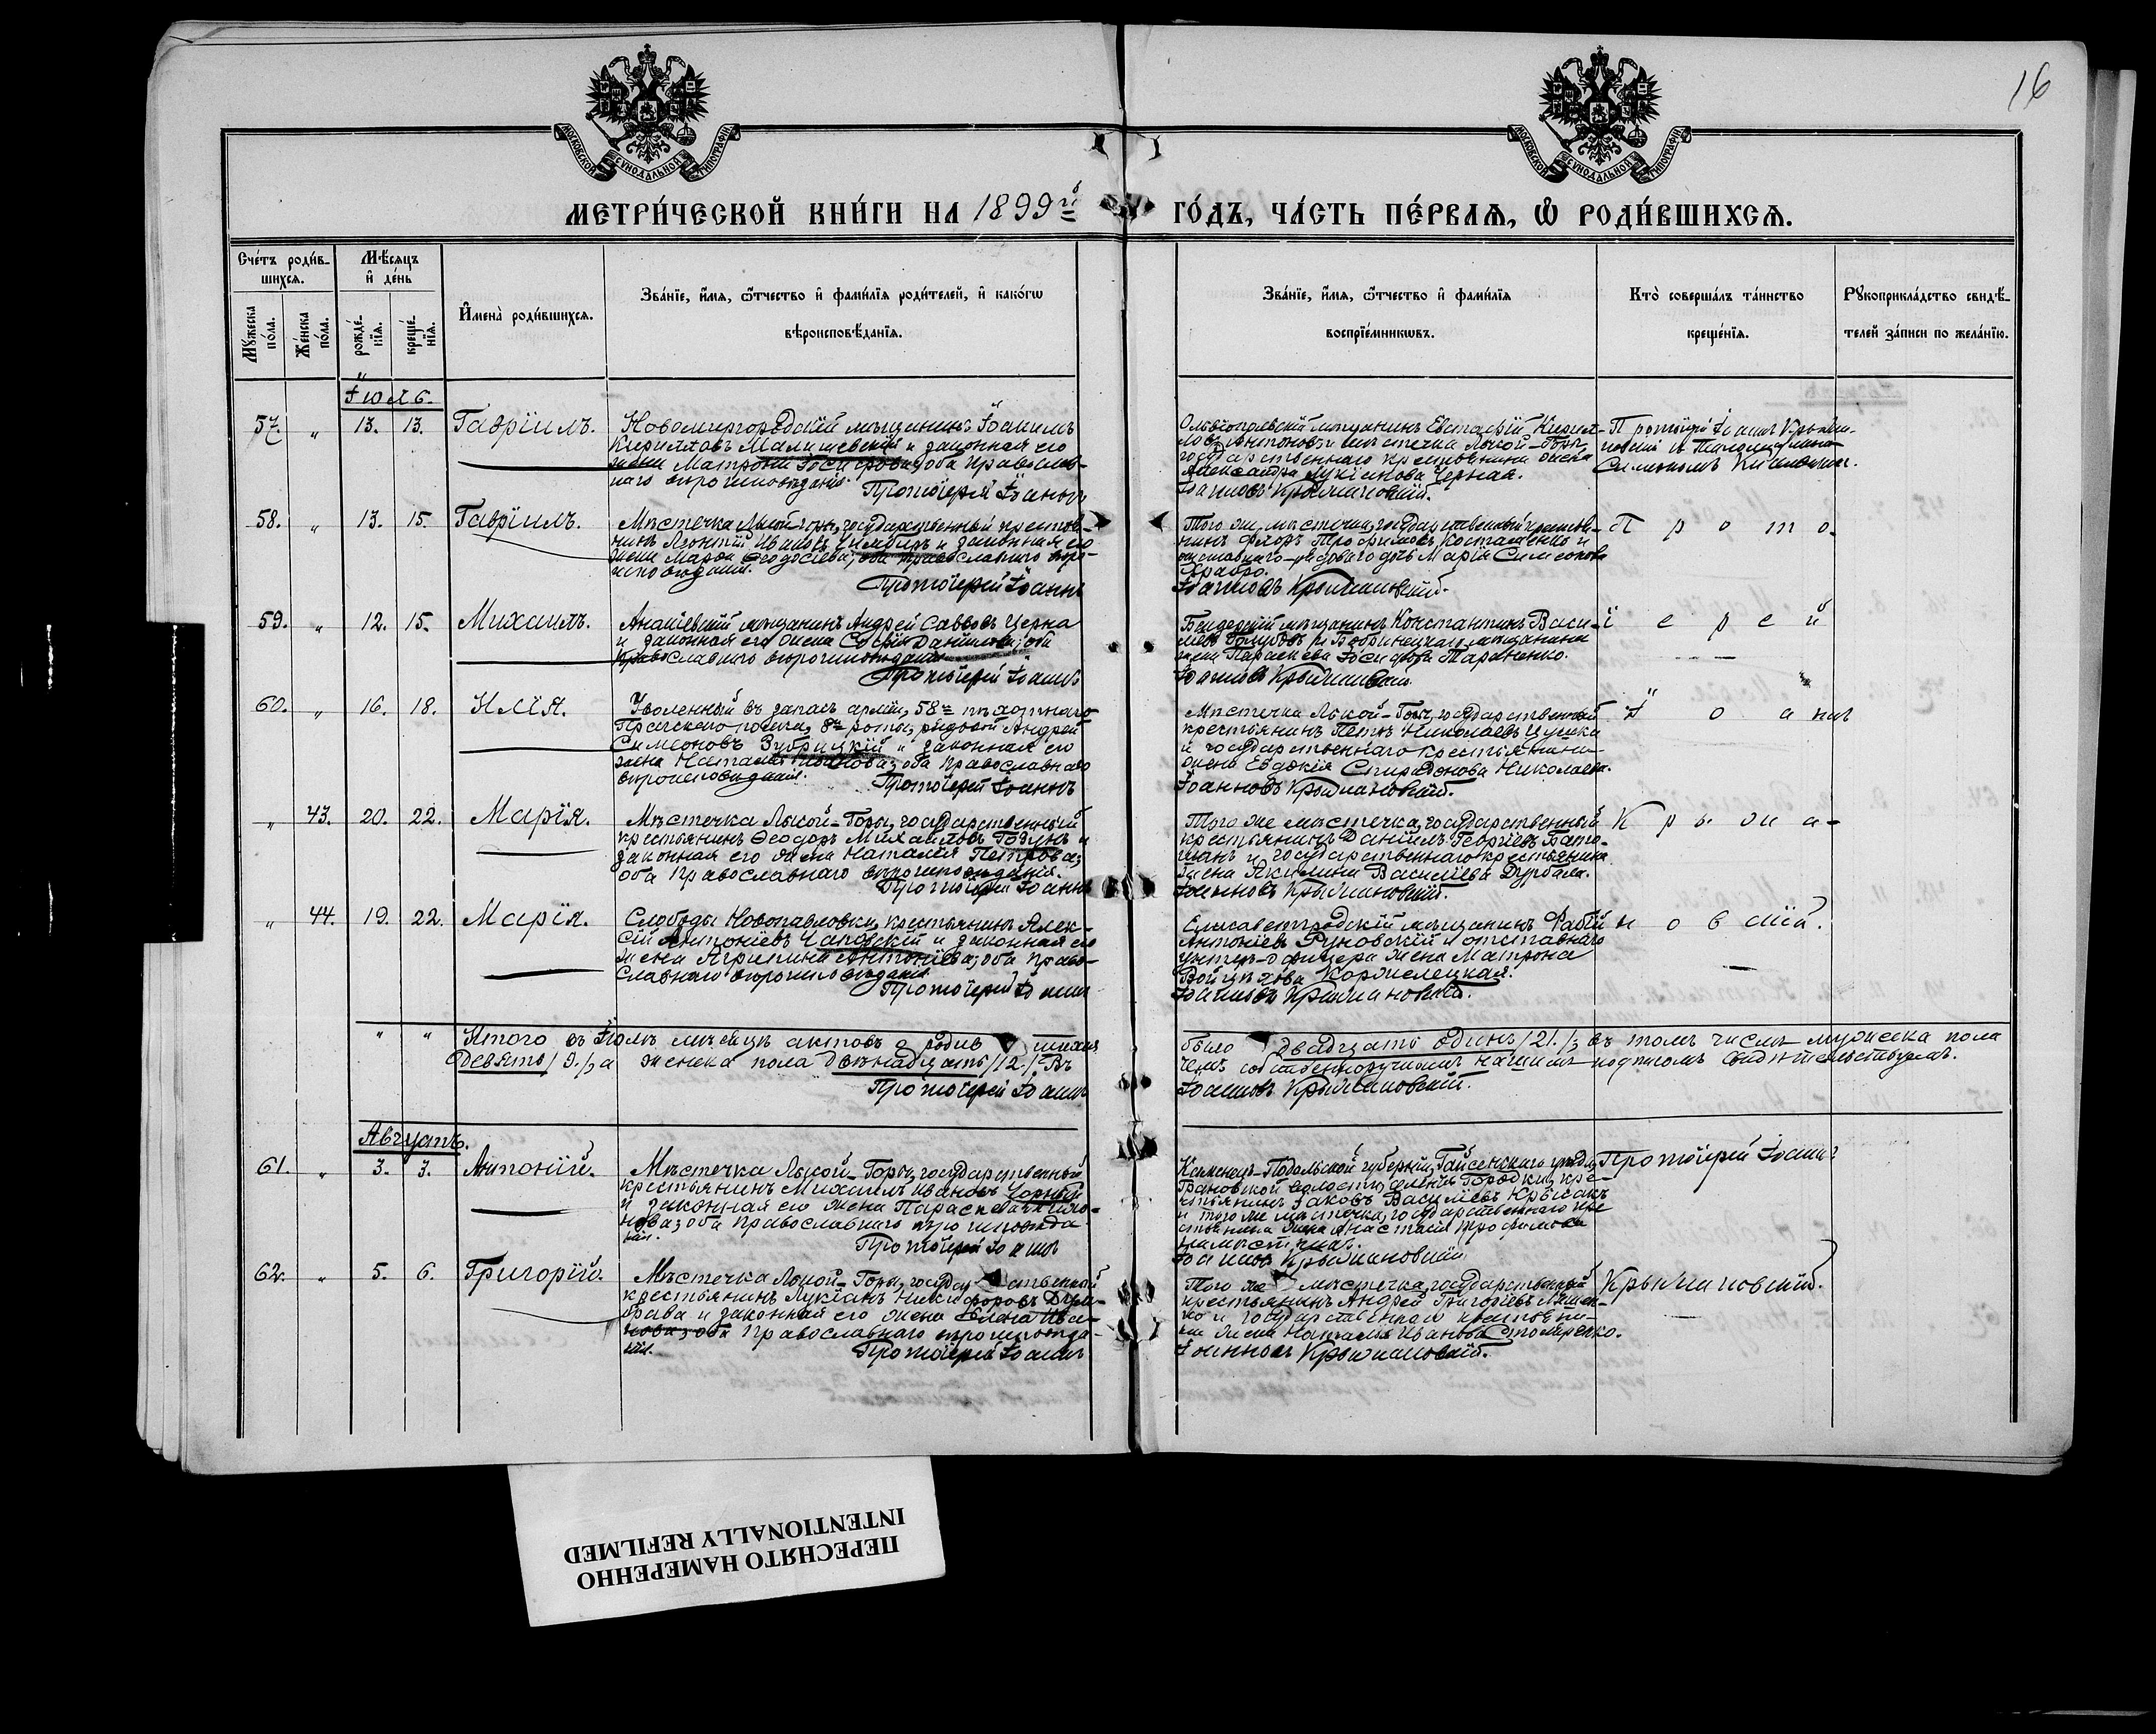 16
МОСКОВСКОЙ СѴНОДАЛЬНОЙ ТИПОГРАФІИ
МОСКОВСКОЙ СѴНОДАЛЬНОЙ ТИПОГРАФІИ
МЕТРИ́ЧЕСКОЙ КНИ́ГИ НА 1899й ГО́ДЪ, ЧА́СТЬ ПЕ́РВАѦ, Ѡ҆ РОДИ́ВШИХСѦ.
Сче́тъ роди́вшихсѧ.
Мꙋ́жеска по́ла.
Же́нска по́ла.
Мѣ́сѧцъ и҆ де́нь
рожде́нїѧ.
креще́нїѧ.
И҆мена̀ роди́вшихсѧ.
Зва́нїе, и҆́мѧ, ѻ҆́тчество и҆ фами́лїѧ роди́телей, и҆ како́гѡ
вѣроисповѣ́данїѧ.
Зва́нїе, и҆́мѧ, ѻ҆́тчество и҆ фами́лїѧ
воспрїе́мникѡвъ.
Кто̀ соверша́лъ та́инство
креще́нїѧ.
Рꙋкоприкла́дство свидѣ́-
телей за́писи по жела́нїю.
Іюль.
57. " 13. 13. Гавріилъ.
Новомиргородскій мѣщанинъ Іоакимъ
Кирилловъ Малишевскій и законная его
жена Матрона Іосифова; оба Православ-
наго вѣроисповѣданія.
Протоіерей Іоаннъ
Ольвіопольскій мѣщанинъ Евстафій Кирил-
ловъ Антоновъ и мѣстечка Лысой-Горы
государственнаго крестьянина жена
Александра Лукіанова Черная.
Іоанновъ Крыжановскій.
Протоіерей Іоаннъ Крыжа-
новскій
58. " 13. 15. Гавріилъ.
Мѣстечка Лысой-Горы, государственный крестья-
нинъ Леонтій Ивановъ и законная его
жена Марѳа Ѳеодосіева; оба православнаго вѣро-
исповѣданія.
Протоіерей Іоаннъ
Того же мѣстечка, государственный крестья-
нинъ Флоръ Трофимовъ Косташенко и
отставнаго рядоваго дочь Марія Симеонова
Храбро.
Іоанновъ Крыжановскій.
П р о т о-
59. " 12. 15. Михаилъ.
Ананіевскій мѣщанинъ Андрей Саввовъ Церна
и законная его жена Софія Даніилова; оба
Православнаго вѣроисповѣданія.
Протоіерей Іоаннъ
Бендерскій мѣщанинъ Константинъ Васи-
льевъ Голубовъ и Бобринецкаго мѣщанина
жена Параскева Іосифова Тараненко.
Іоанновъ Крыжановскій.
і е р е й
60. " 16. 18. Илія.
Уволенный въ запасъ арміи, 58го пѣхотнаго
Прагскаго полка, 8й роты, рядовой Андрей
Симеоновъ Зубрицкій и законная его
жена Наталія; оба православнаго
вѣроисповѣданія.
Протоіерей Іоаннъ
Мѣстечка Лысой-Горы, государственный
крестьянинъ Петръ Николаевъ Цушка
и государственнаго крестьянина
жена Евдокія Спиридонова Николаева.
Іоанновъ Крыжановскій.
І о а ннъ
" 43. 20. 22. Марія.
Мѣстечка Лысой-Горы, государственный
крестьянинъ Ѳеодоръ Михайловъ Говунъ и
законная его жена Наталія Петрова;
оба Православнаго вѣроисповѣданія.
Протоіерей Іоаннъ
Того же мѣстечка, государственный
крестьянинъ Даніилъ Георгіевъ Бато-
жанъ и государственнаго крестьянина
жена Акилина Василіева Дурбала.
Іоанновъ Крыжановскій.
К р ы ж а-
" 44. 19. 22. Марія.
Слободы Новопавловки, крестьянинъ Алек-
сій Антоніевъ Чаповскій и законная его
жена Агрипина Антоніева; оба Право-
славнаго вѣроисповѣданія.
Протоіерей Іоаннъ
Елисаветградскій мѣщанинъ Фабій
Антоніевъ Руновскій и отставнаго
унтеръ-офицера жена Матрона
Войцихова Коржелецкая.
Іоанновъ Крыжановскій.
н о в скій.
" " Итого въ Іюлѣ мѣсяцѣ актовъ о родившихся было двадцать одинъ /21./; въ томъ числѣ мужеска пола
девять /9./, а женска пола двѣнадцать /12./. Въ чемъ собственноручнымъ нашимъ подписомъ свидѣтельствуемъ.
Протоіерей Іоаннъ Іоанновъ Крыжановскій.
Августъ.
61. " 3. 3. Антоній.
Мѣстечка Лысой-Горы, государственный
крестьянинъ Михаилъ Ивановъ Чорный
и законная его жена Параскева
; оба Православнаго вѣроисповѣда-
нія.
Протоіерей Іоаннъ
Каменецъ-Подольской губерніи, Гайсенскаго уѣзда,
Грановской волости, селенія Городки, кре-
стьянинъ Іаковъ Василіевъ Крысакъ
и того же мѣстечка, государственнаго кре-
стьянина жена Анастасія Трофимова
Іоанновъ Крыжановскій
Протоіерей Іоаннъ
62. " 5. 6. Григорій.
Мѣстечка Лысой-Горы, государственный
крестьянинъ Лукіанъ Никифоровъ Дуби-
брава и законная его жена Елена Ива-
нова; оба Православнаго вѣроисповѣда-
нія.
Протоіерей Іоаннъ
Того же мѣстечка, государственный
крестьянинъ Андрей Григоріевъ
и государственнаго крестьяни-
на жена Наталія Иванова Столяренко.
Іоанновъ Крыжановскій.
Крыжановскій.
ПЕРЕСНЯТО НАМЕРЕННО
INTENTIONALLY REFILMED